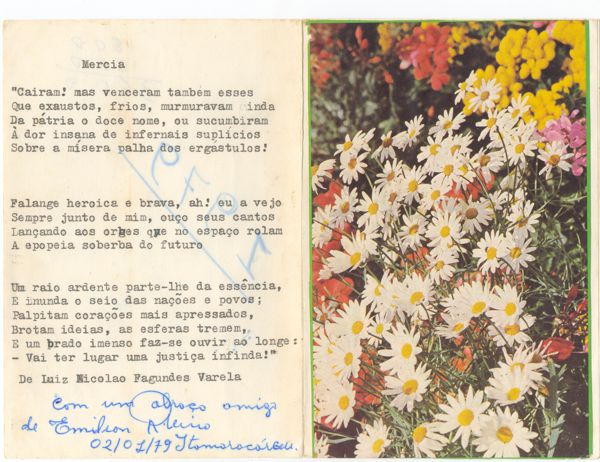 Mercia
"Cairam! mas venceram também esses
Que exaustos, frios, murmuravam inda
Da pátria o doce nome, ou sucumbiram
À dor insana de infernais suplícios
Sobre a mísera palha dos ergástulos!
Falange heroica e brava, ah! eu a vejo
Sempre junto de mim, ouço seus cantos
Lançando aos orbes que no espaço rolam
A epopeia soberba do futuro
Um raio ardente parte-lhe da essência,
E inunda o seio das nações e povos;
Palpitam corações mais apressados,
Brotam ideias, as esferas tremem,
E um brado imenso faz-se ouvir ao longe:
- Vai ter lugar uma justiça infinda!"
De Luiz Nicolao Fagundes Varela
Com um abraço amigo
de Emilion
02/01/79